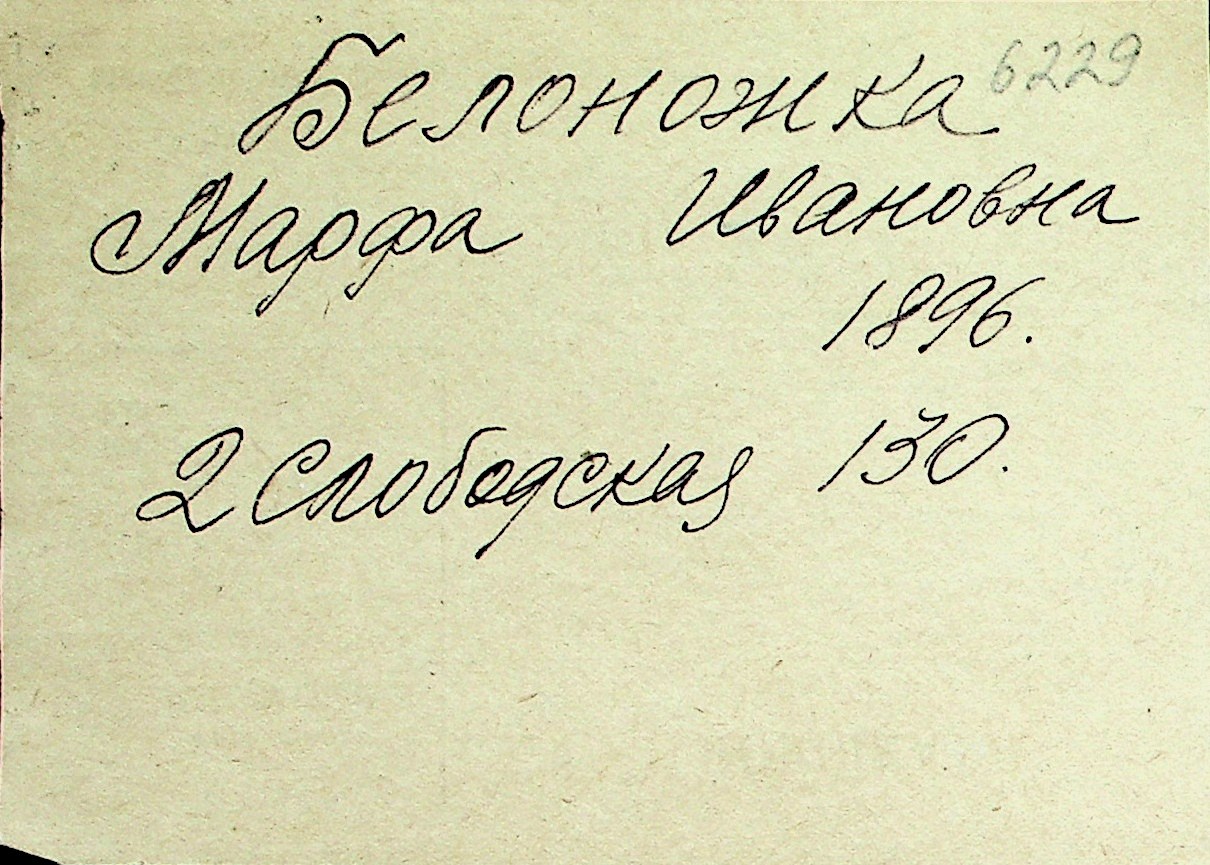 Белоножка 6229
Марфа Ивановна
1896.
2 Слободская 130.